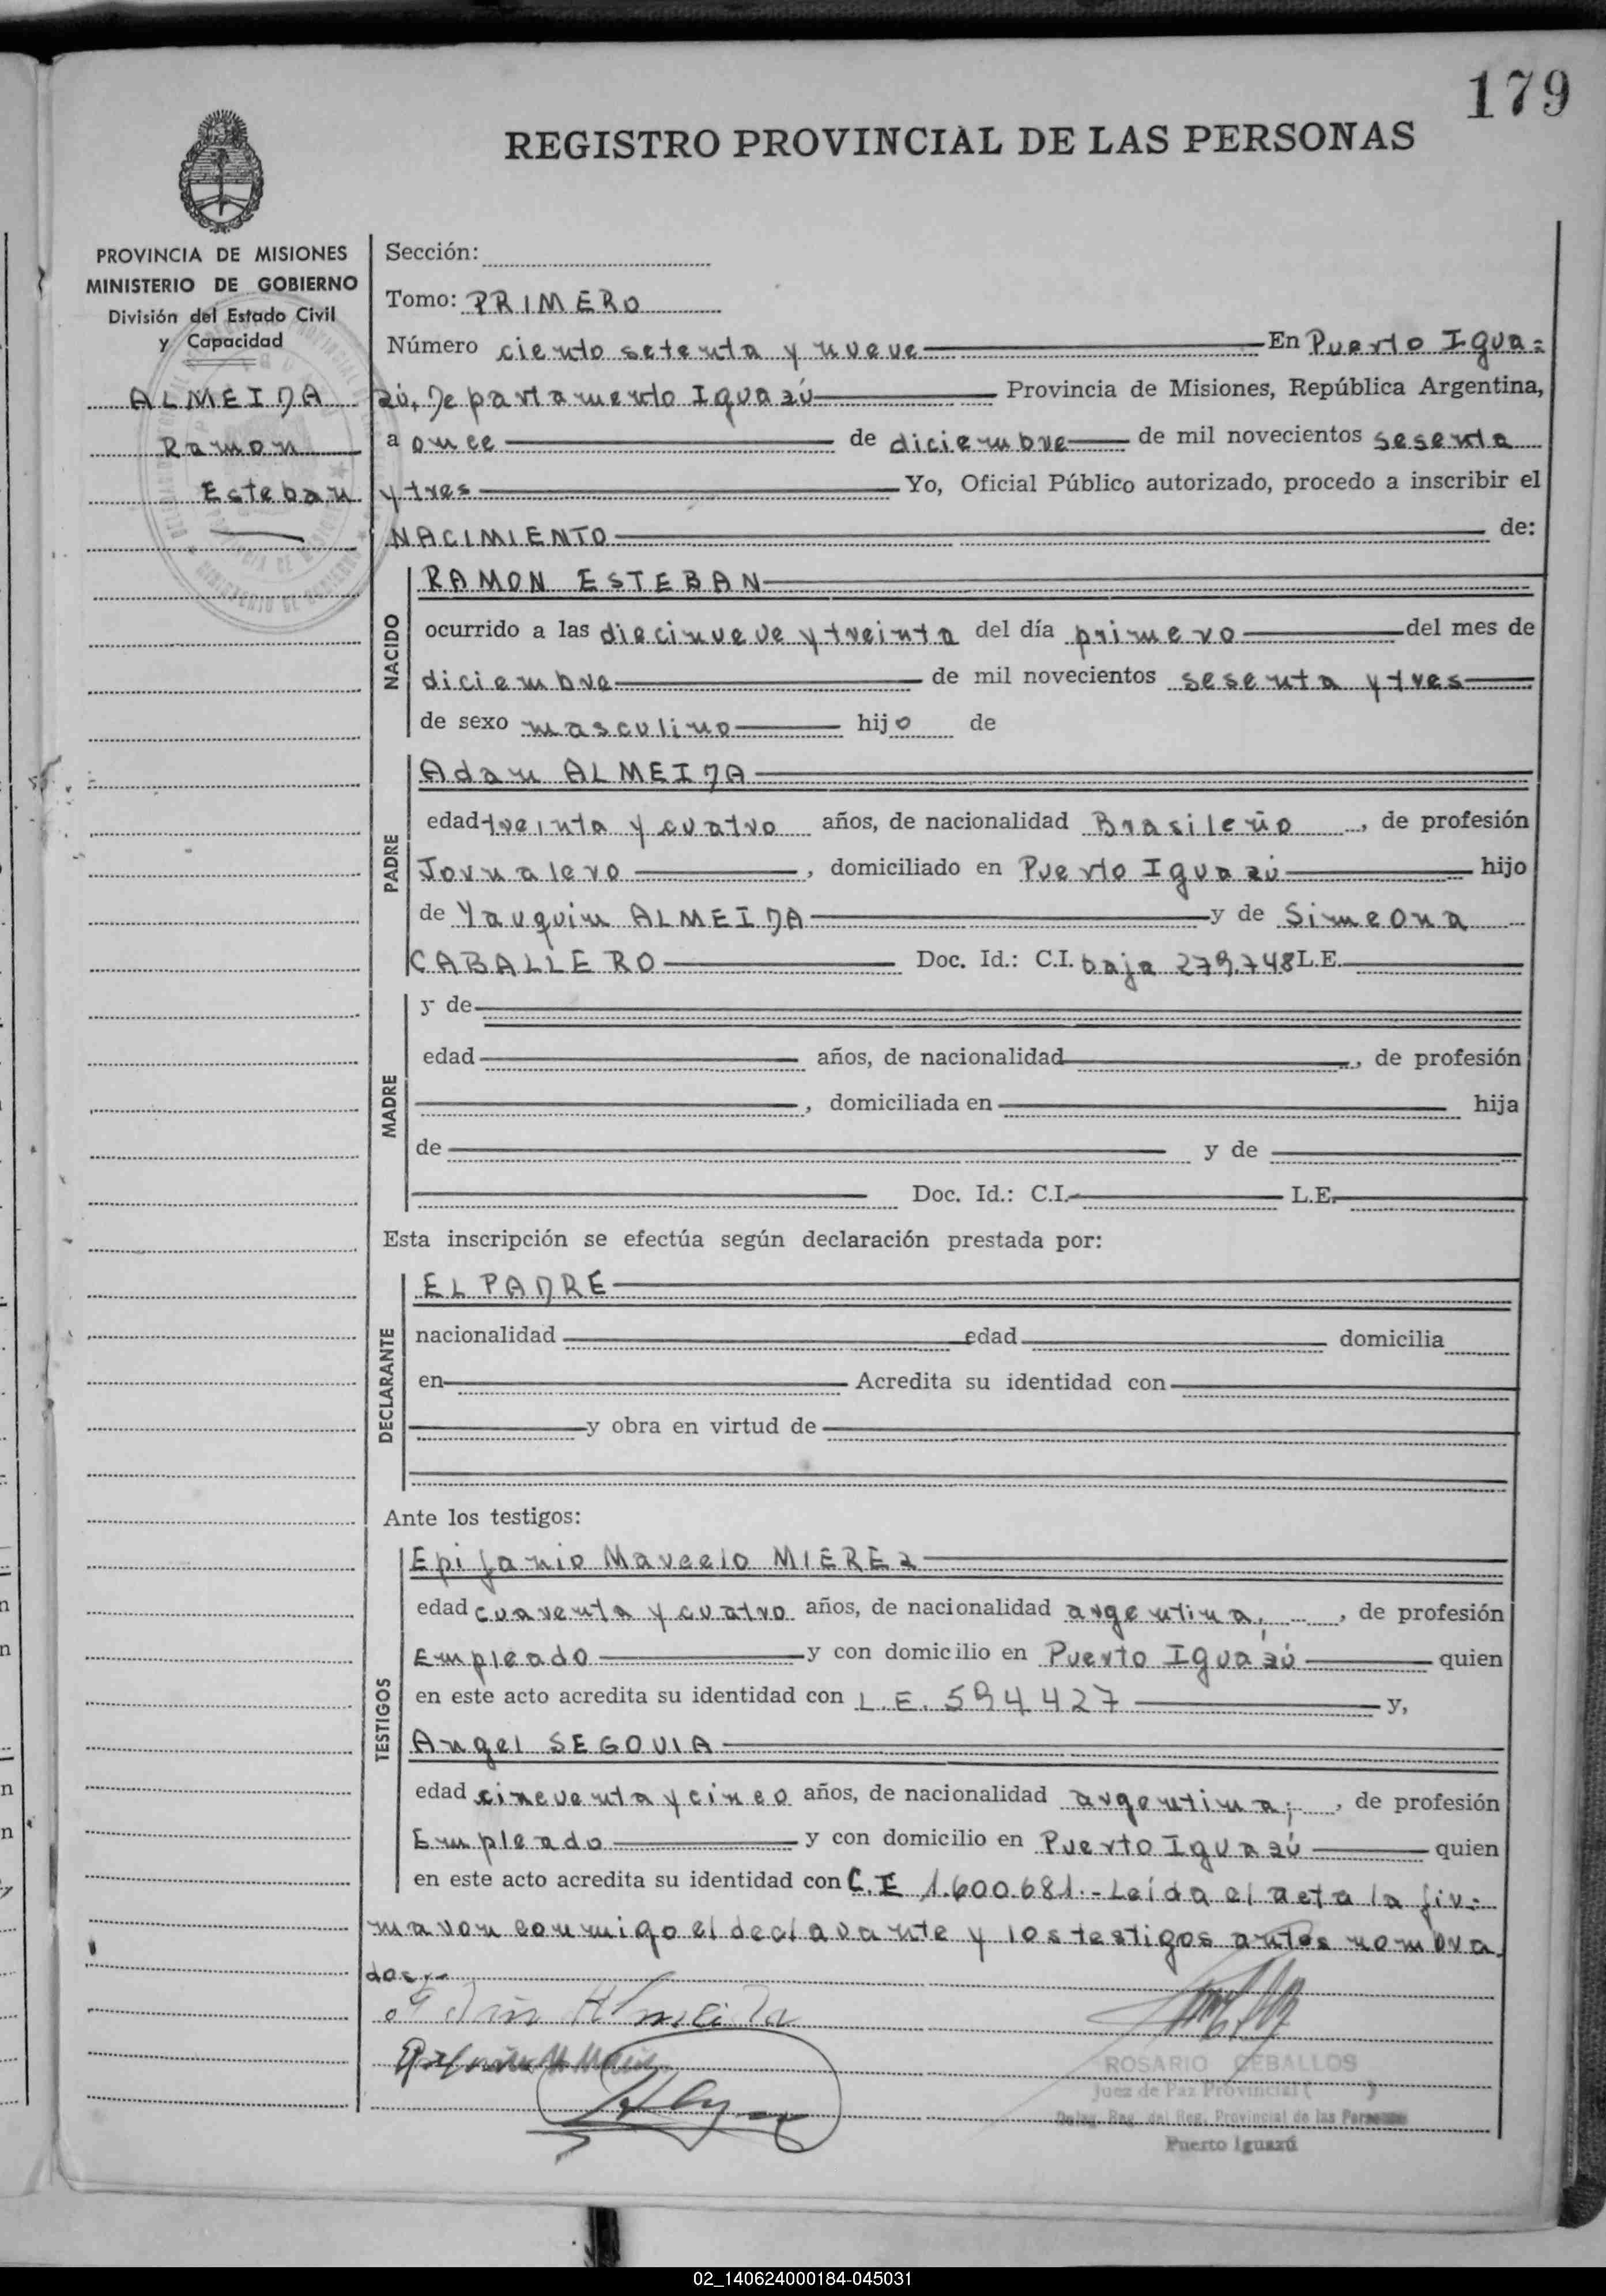 179
REGISTRO PROVINCIAL DE LAS PERSONAS
PROVINCIA DE MISIONES
MINISTERIO DE GOBIERNO
División del Estado Civil
y Capacidad
ALMEIDA
Ramon
Esteban
Sección:
Tomo: PRIMERO
Número ciento setenta y nueve En Puerto Igua=
zú, Departamento Iguazú Provincia de Misiones, República Argentina,
a once de diciembre de mil novecientos sesenta
y tres Yo, Oficial Público autorizado, procedo a inscribir el
NACIMIENTO de:
NACIDO
RAMON ESTEBAN
ocurrido a las diecinueve y treinta del día primero del mes de
diciembre de mil novecientos sesenta y tres
de sexo masculino hijo de
PADRE
Adan ALMEIDA
edad treinta y cuatro años, de nacionalidad Brasileño, de profesión
Jornalero, domiciliado en Puerto Iguazú hijo
de Yauquin ALMEIDA y de Simeona
CABALLERO Doc. Id.: C.I. baja 279.748 L.E.
MADRE
y de
edad años, de nacionalidad, de profesión
, domiciliada en hija
de y de
Doc. Id.: C.I. L.E.
Esta inscripción se efectúa según declaración prestada por:
DECLARANTE
EL PADRE
nacionalidad edad domicilia
en Acredita su identidad con
y obra en virtud de
Ante los testigos:
TESTIGOS
Epifanio Marcelo MIEREZ
edad cuarenta y cuatro años, de nacionalidad argentina, , de profesión
Empleado y con domicilio en Puerto Iguazú quien
en este acto acredita su identidad con L.E. 594427 y,
Angel SEGOVIA
edad cincuenta y cinco años, de nacionalidad argentina; , de profesión
Empleado y con domicilio en Puerto Iguazú quien
en este acto acredita su identidad con C.I 1.600.681.- Leída el acta la fir=
maron conmigo el declarante y los testigos antes nombra
dos.-
Almeida
ROSARIO CEBALLOS
Juez de Paz Provincial ( )
Deleg. Reg. del Reg. Provincial de las Personas
Puerto Iguazú
02_140624000184-045031